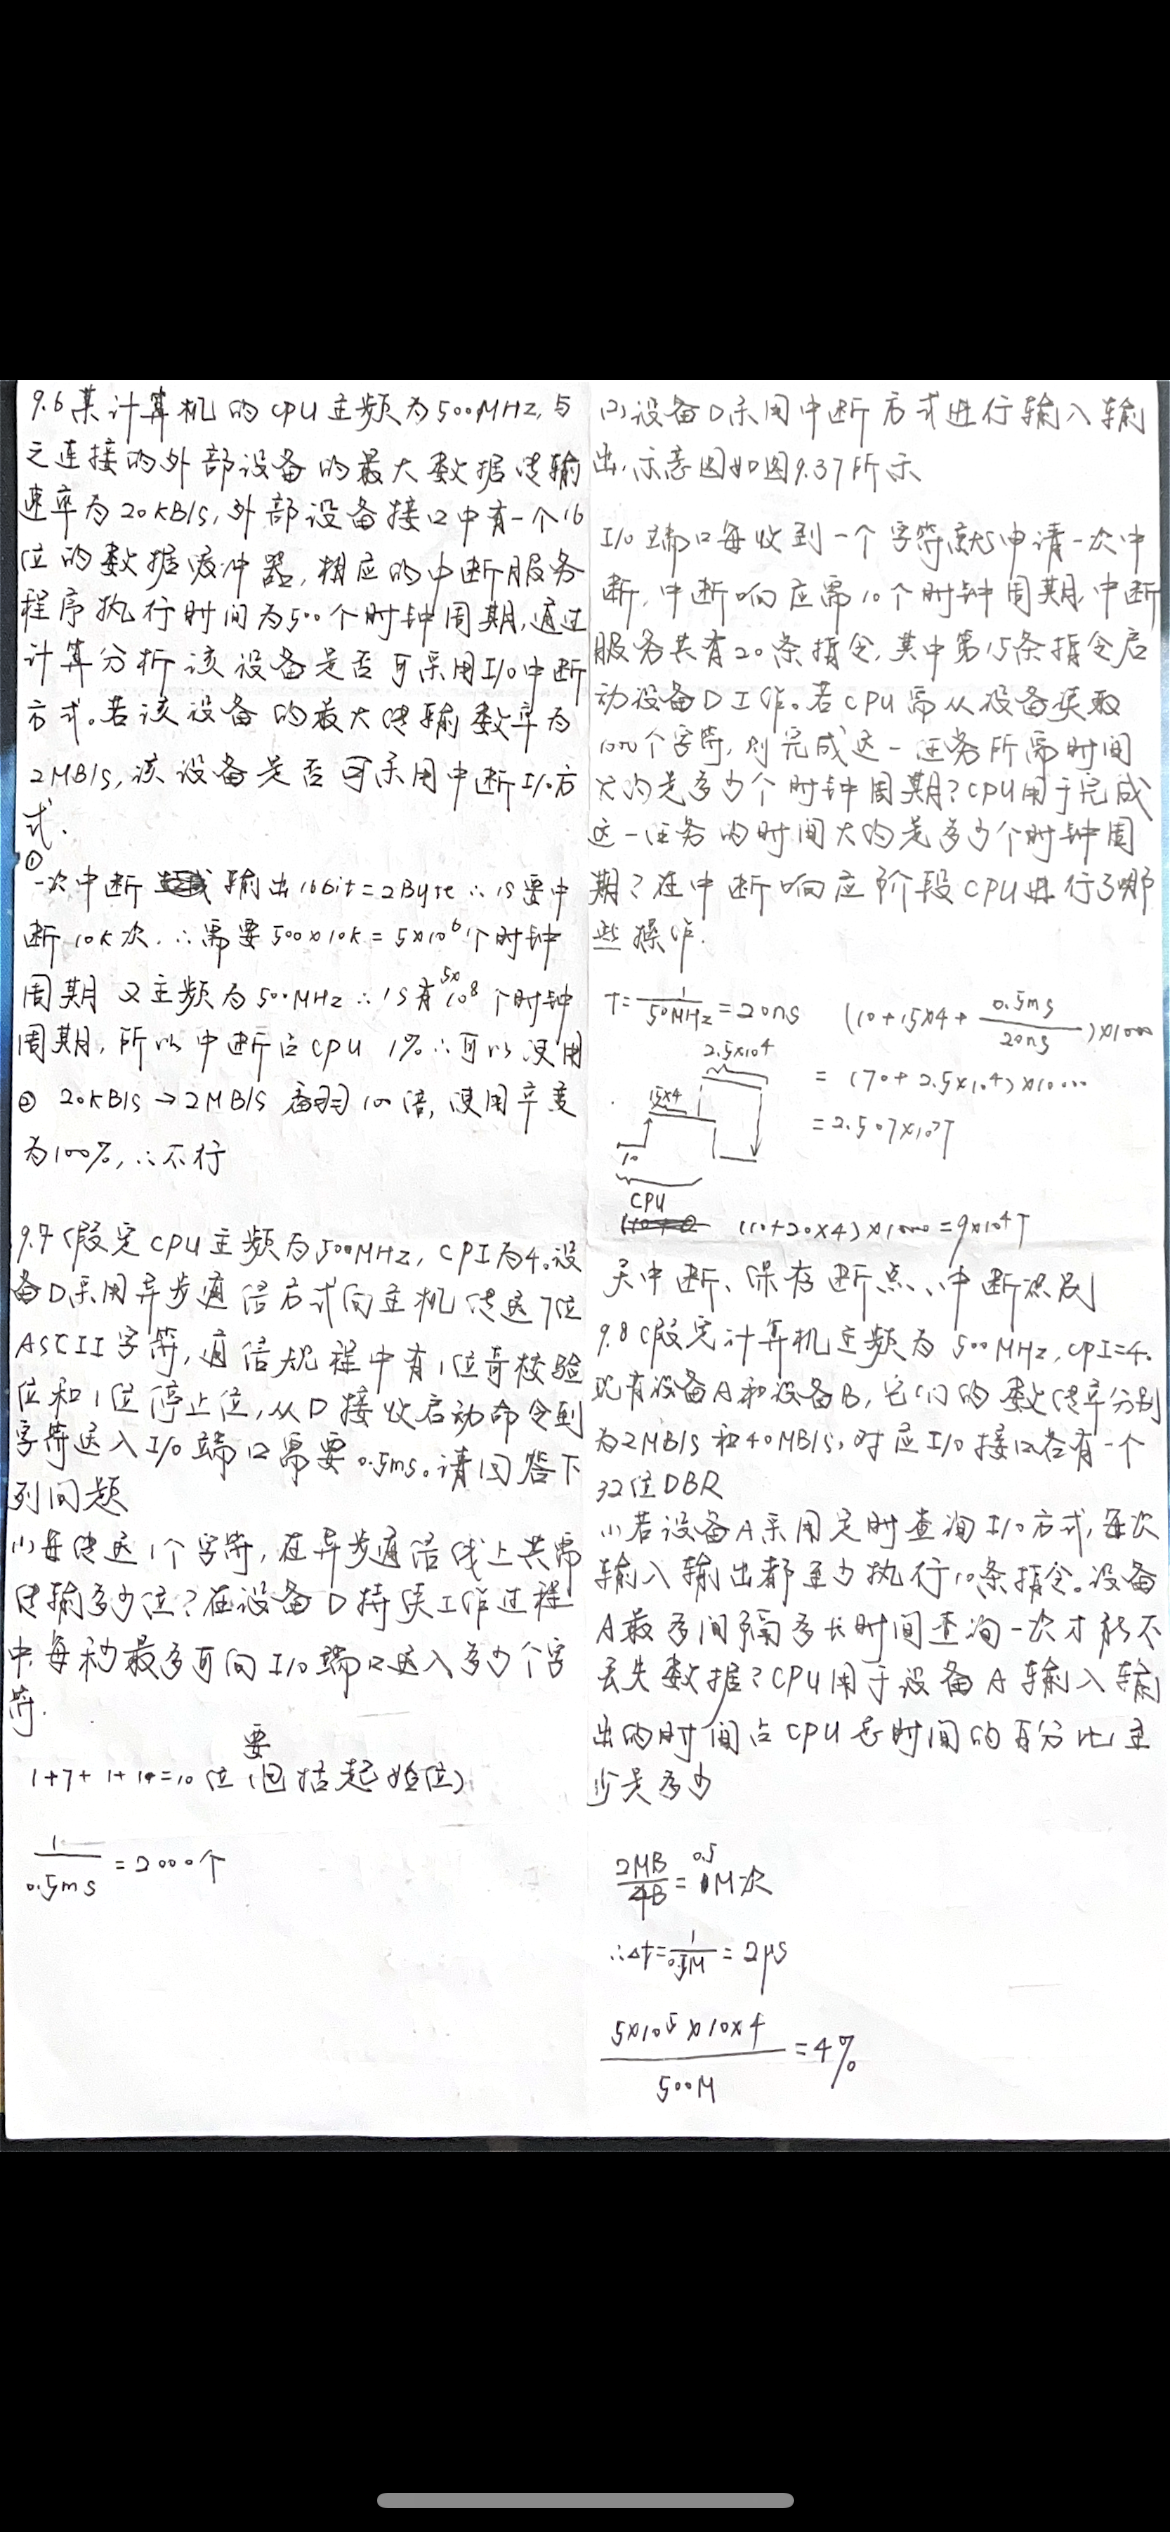 9.6 某计算机的CPU主频为500MHz,与
之连接的外部设备的最大数据传输
速率为20KB/s,外部设备接口中有一个16
位的数据缓冲器,相应的中断服务
程序执行时间为500个时钟周期,通过
计算分析该设备是否可采用I/O中断
方式。若该设备的最大传输数率为
2MB/s,该设备是否可采用中断I/O方
式.
①
一次中断 输出16bit=2Byte ∴1S要中
断10K次. ∴需要500×10K=5×10⁶个时钟
周期 又主频为500MHz ∴1S有5×10⁸个时钟
周期,所以中断占CPU 1% ∴可以使用
② 20KB/s→2MB/s 翻 100倍,使用率变
为100%,∴不行
9.7 假定CPU主频为500MHz,CPI为4。设
备D采用异步通信方式向主机传送7位
ASCII字符,通信规程中有1位奇校验
位和1位停止位,从D接收启动命令到
字符送入I/O端口需要0.5ms。请回答下
列问题
(1)每传送1个字符,在异步通信线上共需
传输多少位?在设备D持续工作过程
中,每秒最多可向I/O端口送入多少个字
符.
要
1+7+1+1=10位(包括起始位)
1/0.5ms=2000个
(2)设备D采用中断方式进行输入输
出,示意图如图9.37所示
I/O端口每收到一个字符就申请一次中
断,中断响应需10个时钟周期,中断
服务共有20条指令,其中第15条指令启
动设备D工作。若CPU需从设备读取
1000个字符,则完成这一任务所需时间
大约是多少个时钟周期?CPU用于完成
这一任务的时间大约是多少个时钟周
期?在中断响应阶段CPU进行了哪
些操作.
T=1/50MHz=20ns (10+15×4+0.5ms/20ns)×1000
2.5×10⁴
=(70+2.5×10⁴)×1000
15×4
=2.507×10⁷T
10
CPU
(10+20×4)×1000=9×10⁴T
关中断、保存断点、中断识别
9.8 假定计算机主频为500MHz,CPI=4.
现有设备A和设备B,它们的数传率分别
为2MB/s和40MB/s,对应I/O接口各有一个
32位DBR
(1)若设备A采用定时查询I/O方式,每次
输入输出都至少执行10条指令。设备
A最多间隔多长时间查询一次才能不
丢失数据?CPU用于设备A输入输
出的时间占CPU总时间的百分比至
少是多少
2MB/4B=0.5M次
∴Δt=1/0.5M=2μs
5×10⁵×10×4/500M=4%